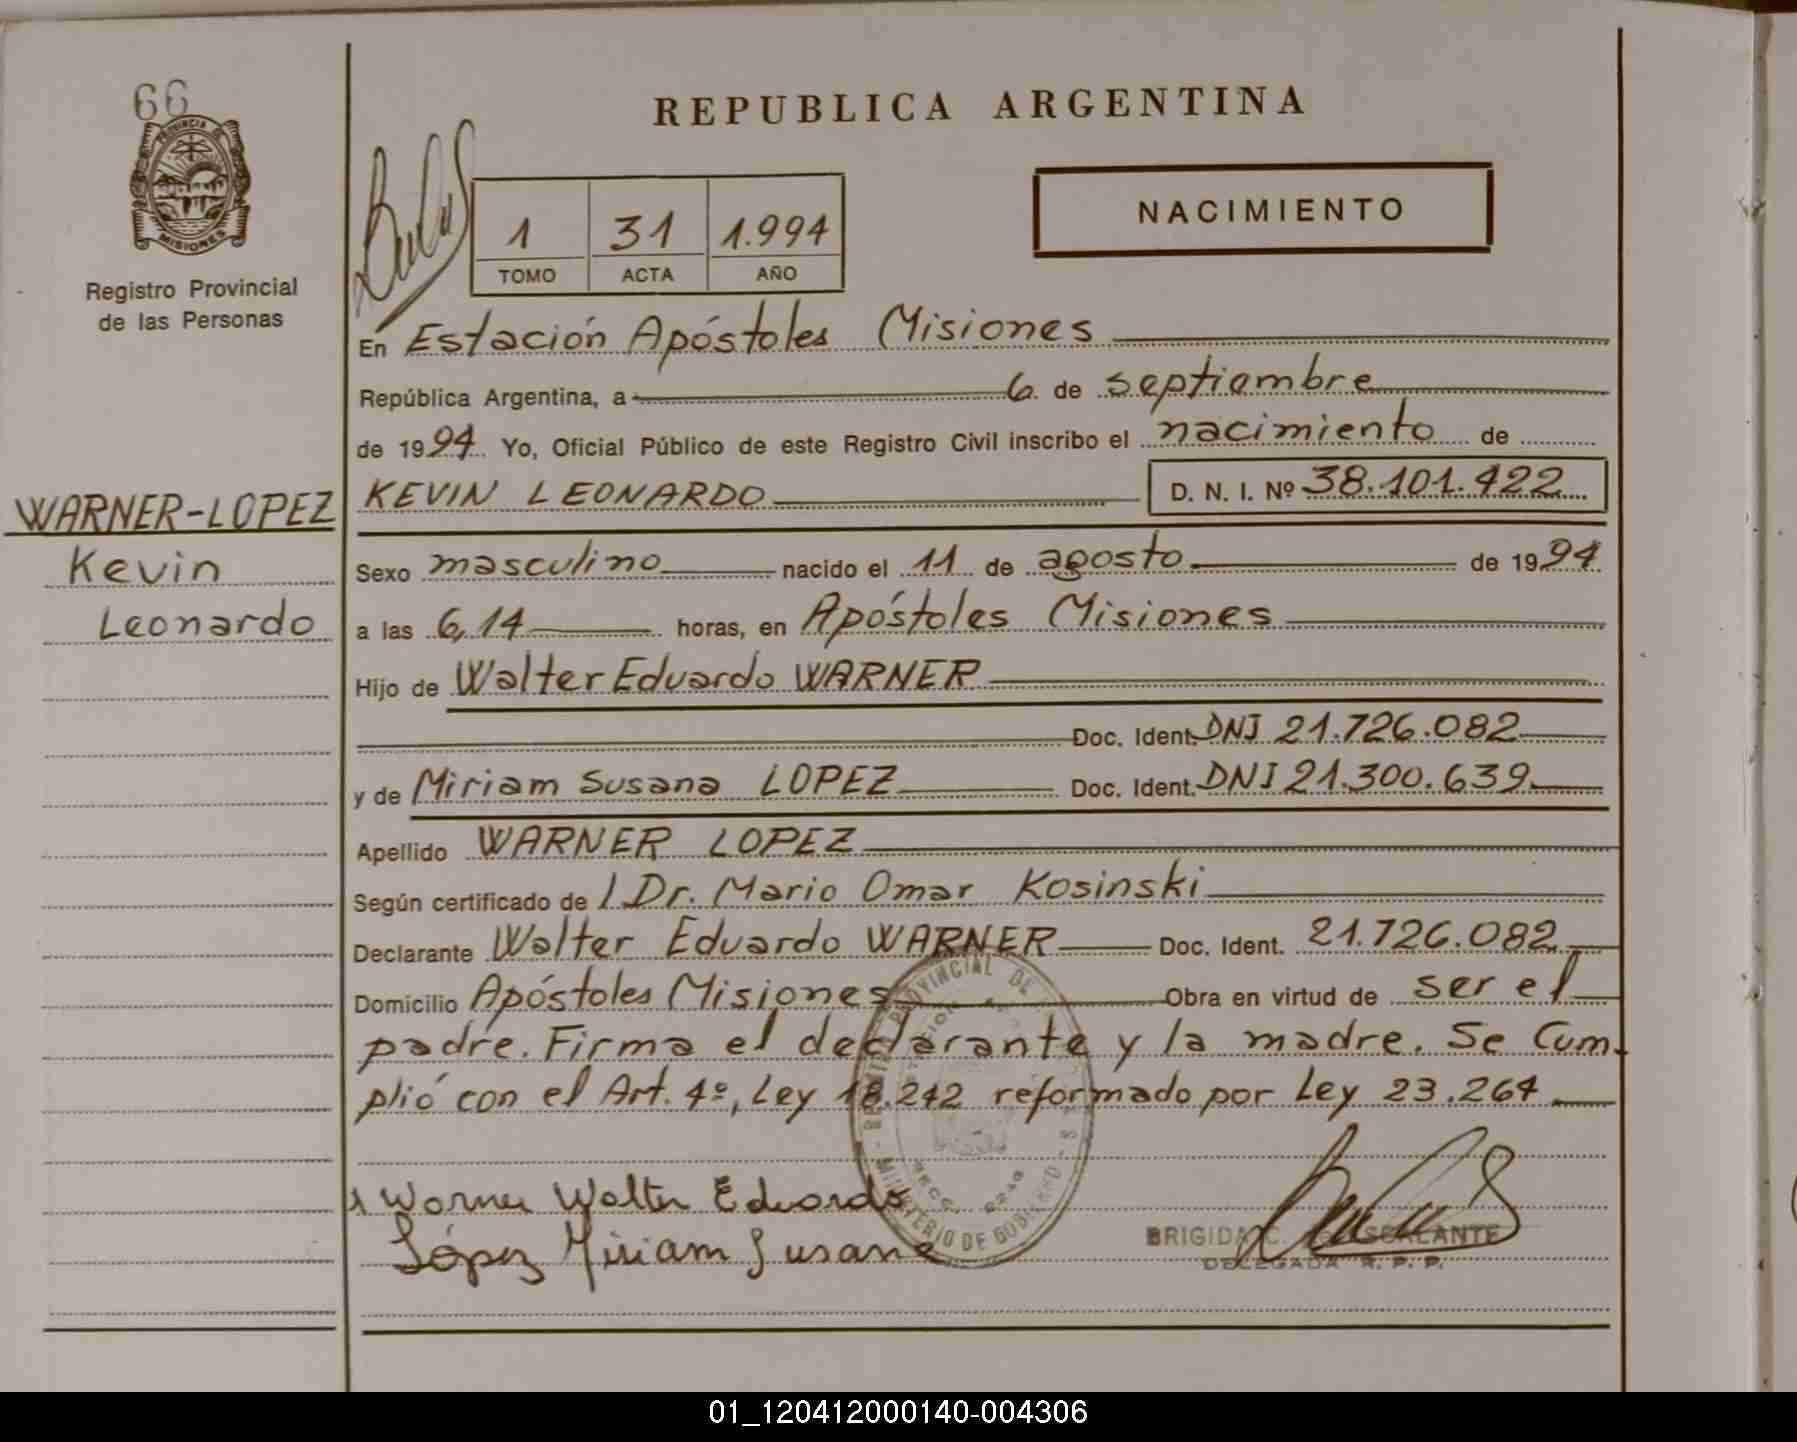 66
PROVINCIA DE
MISIONES
Registro Provincial
de las Personas
WARNER-LOPEZ
Kevin
Leonardo
REPUBLICA ARGENTINA
1 31 1.994
TOMO ACTA AÑO
NACIMIENTO
En Estación Apóstoles Misiones
República Argentina, a 6 de septiembre
de 1994 Yo, Oficial Público de este Registro Civil inscribo el nacimiento de
KEVIN LEONARDO D. N. I. Nº 38.101.422
Sexo masculino nacido el 11 de agosto de 1994
a las 6,14 horas, en Apóstoles Misiones
Hijo de Walter Eduardo WARNER
Doc. Ident. DNI 21.726.082
y de Miriam Susana LOPEZ Doc. Ident. DNI 21.300.639
Apellido WARNER LOPEZ
Según certificado de l Dr. Mario Omar Kosinski
Declarante Walter Eduardo WARNER Doc. Ident. 21.726.082
Domicilio Apóstoles Misiones Obra en virtud de ser el
padre. Firma el declarante y la madre. Se Cum-
plió con el Art. 4º, Ley 18.242 reformado por Ley 23.264
Warner Walter Eduardo
López Miriam Susana
PROVINCIAL DE
MINISTERIO DE GOBIERNO
BRIGIDA C. ESCALANTE
DELEGADA R. P. P.
01_120412000140-004306